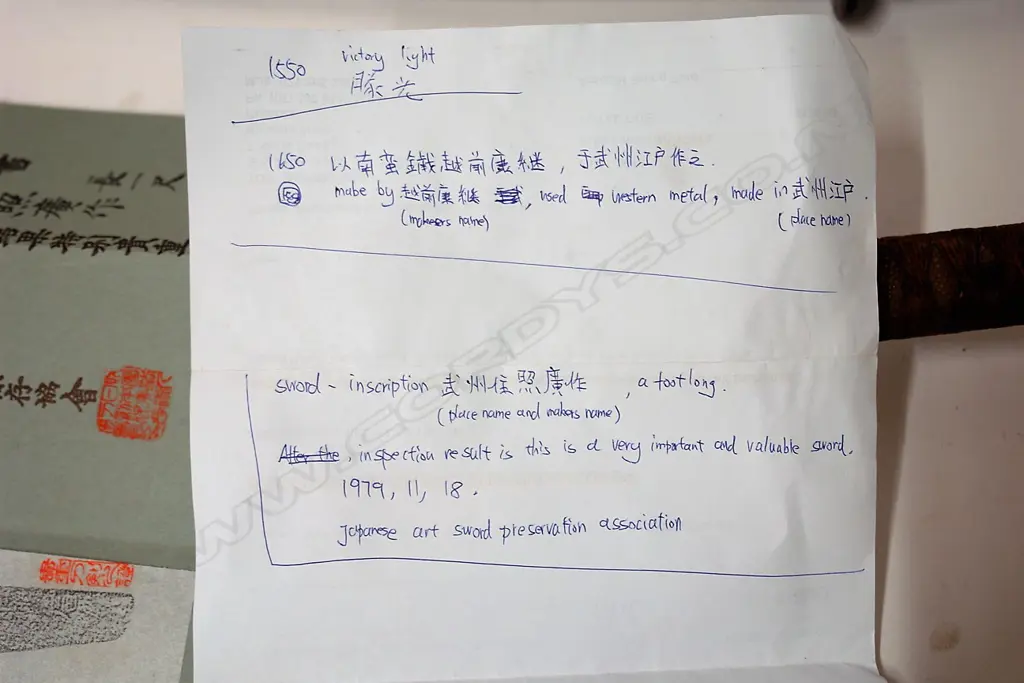 victory light
1550 勝光
1650 以南蛮鐵越前康継,于武州江戸作之.
mabe by 越前康継, used western metal, made in 武州江戸.
(makers name) (place name)
sword - inscription 武州住照廣作 , a foot long.
(place name and makers name)
After the, inspection result is this is a very important and valuable sword.
1979, 11, 18.
Japanese art sword preservation association
長一尺
照廣作
特別貴重
存協會
WWW.CCRDYS.CO